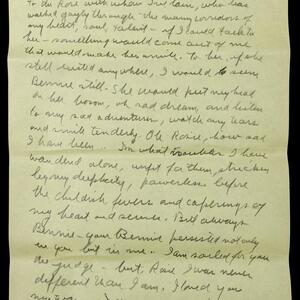 To the Rose with whom I
walked gayly through the many corridors of
my
her — something would come out of me
that would make her smile. To her, if she
still existed anywhere, I would be
Bennie still. She would put my head
on her bosom, oh sad dream, and listen
to my sad adventures, watch my tears
and smile tenderly. Oh Rosie, how sad
I have been. In what I have
wandered alone, unfit for them, stricken
by my duplicity, powerless before
the childish fevers and caperings of
my heart and senses. But always
Bennie — your Bennie persisted not only
in you but in me. I am soiled for you
the judge — but, Rose I was never
different than I am. I loved you
my